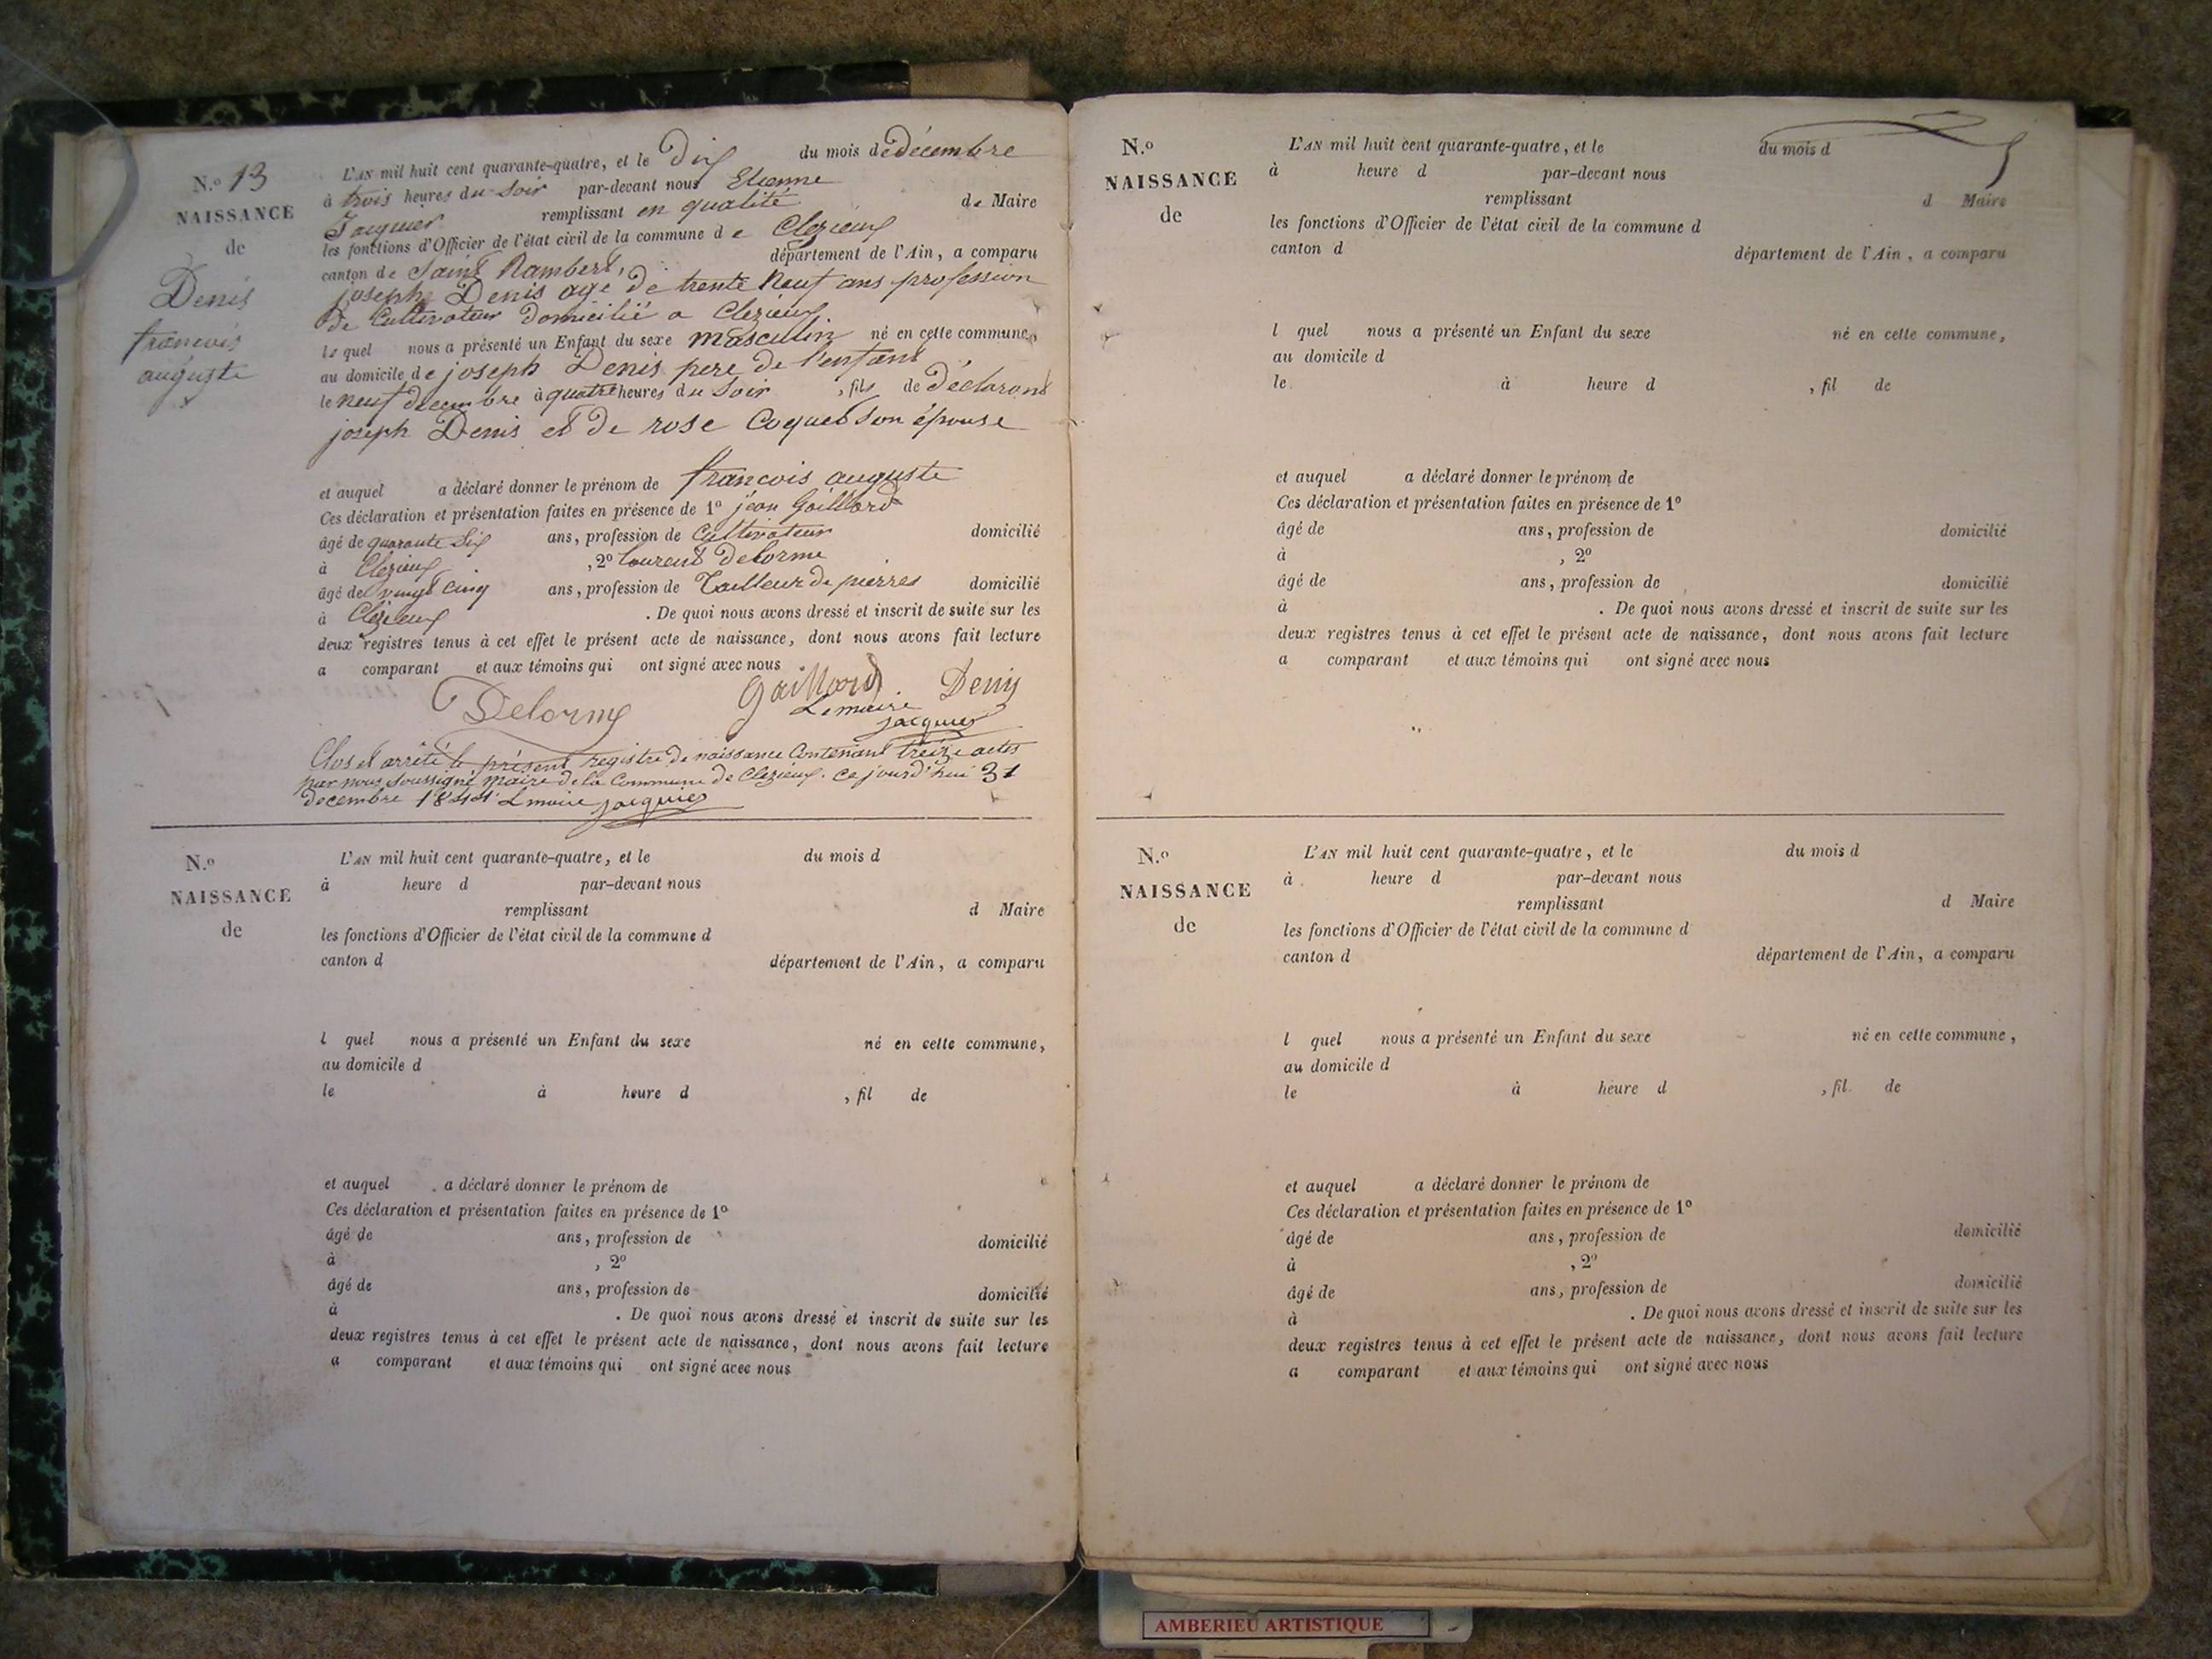 N.o 13
NAISSANCE
de
Denis
francois
auguste
L'AN mil huit cent quarante-quatre, et le Dix du mois de décembre
à trois heures du Soir par-devant nous Etienne
Jacquier remplissant en qualité de Maire
les fonctions d'Officier de l'état civil de la commune de Clezieux
canton de Saint Rambert, département de l'Ain, a comparu
joseph Denis agé de trente Neuf ans profession
de Cultivateur domicilié a Clezieux
lequel nous a présenté un Enfant du sexe masculin né en cette commune,
au domicile de joseph Denis pere de l'enfant
le neuf decembre à quatre heures du Soir, fils de Déclarant
joseph Denis et De rose Coquet Son épouse
et auquel a déclaré donner le prénom de francois auguste
Ces déclaration et présentation faites en présence de 1o jean Gaillard
âgé de quarante Six ans, profession de Cultivateur domicilié
à Clezieux, 2o Laurent Delorme
âgé de vingt cinq ans, profession de Tailleur de pierres domicilié
à Clezieux. De quoi nous avons dressé et inscrit de suite sur les
deux registres tenus à cet effet le présent acte de naissance, dont nous avons fait lecture
a comparant et aux témoins qui ont signé avec nous
Gaillard. Denis
Delorme Le maire
jacquier
Clos et arrêté le présent registre de naissance Contenant treize actes
par nous Soussigné Maire de la Commune de Clezieux. ce jourd'hui 31
decembre 1844 Le maire jacquier
N.o
NAISSANCE
de
L'AN mil huit cent quarante-quatre, et le du mois d
à heure d par-devant nous
remplissant d Maire
les fonctions d'Officier de l'état civil de la commune d
canton d département de l'Ain, a comparu
l quel nous a présenté un Enfant du sexe né en cette commune,
au domicile d
le à heure d , fil de
et auquel a déclaré donner le prénom de
Ces déclaration et présentation faites en présence de 1o
âgé de ans, profession de domicilié
à , 2o
âgé de ans, profession de domicilié
à . De quoi nous avons dressé et inscrit de suite sur les
deux registres tenus à cet effet le présent acte de naissance, dont nous avons fait lecture
a comparant et aux témoins qui ont signé avec nous
N.o
NAISSANCE
de
L'AN mil huit cent quarante-quatre, et le du mois d
à heure d par-devant nous
remplissant d Maire
les fonctions d'Officier de l'état civil de la commune d
canton d département de l'Ain, a comparu
l quel nous a présenté un Enfant du sexe né en cette commune,
au domicile d
le à heure d , fil de
et auquel a déclaré donner le prénom de
Ces déclaration et présentation faites en présence de 1o
âgé de ans, profession de domicilié
à , 2o
âgé de ans, profession de domicilié
à . De quoi nous avons dressé et inscrit de suite sur les
deux registres tenus à cet effet le présent acte de naissance, dont nous avons fait lecture
a comparant et aux témoins qui ont signé avec nous
N.o
NAISSANCE
de
L'AN mil huit cent quarante-quatre, et le du mois d
à heure d par-devant nous
remplissant d Maire
les fonctions d'Officier de l'état civil de la commune d
canton d département de l'Ain, a comparu
l quel nous a présenté un Enfant du sexe né en cette commune,
au domicile d
le à heure d , fil de
et auquel a déclaré donner le prénom de
Ces déclaration et présentation faites en présence de 1o
âgé de ans, profession de domicilié
à , 2o
âgé de ans, profession de domicilié
à . De quoi nous avons dressé et inscrit de suite sur les
deux registres tenus à cet effet le présent acte de naissance, dont nous avons fait lecture
a comparant et aux témoins qui ont signé avec nous
AMBERIEU ARTISTIQUE